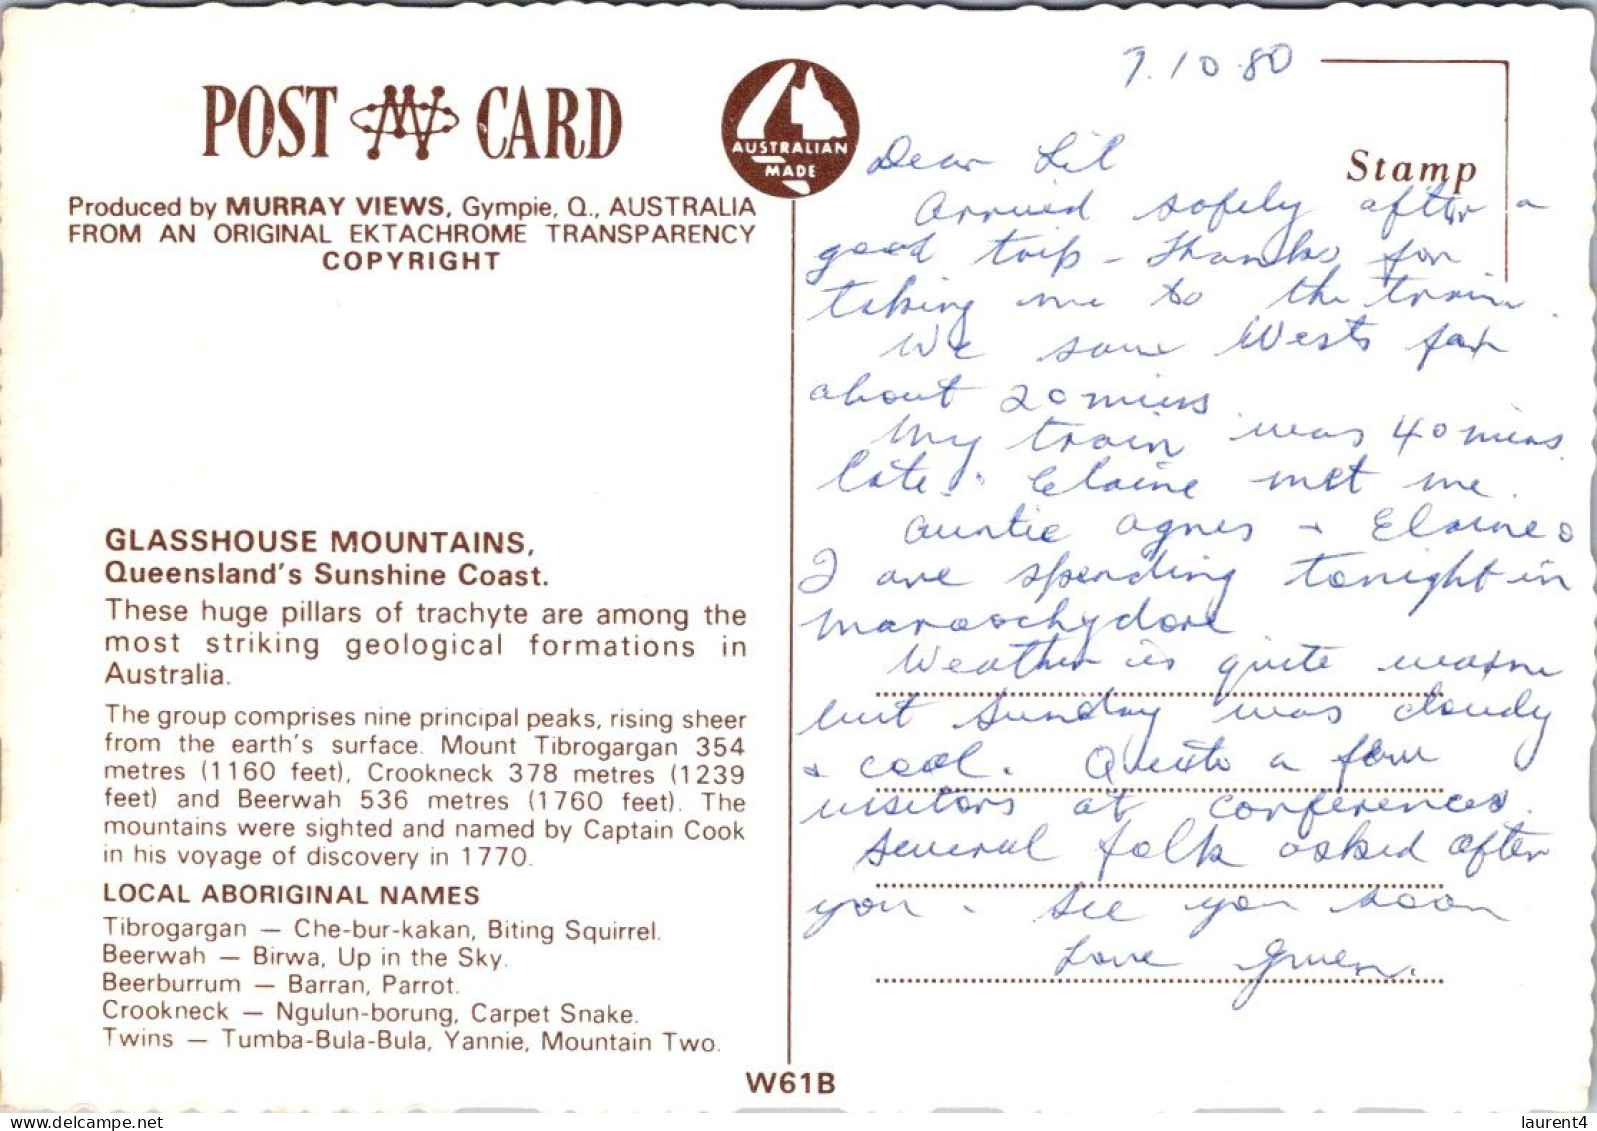 POST CARD
Produced by MURRAY VIEWS, Gympie, Q., AUSTRALIA
FROM AN ORIGINAL EKTACHROME TRANSPARENCY
COPYRIGHT
AUSTRALIAN
MADE
GLASSHOUSE MOUNTAINS,
Queensland's Sunshine Coast.
These huge pillars of trachyte are among the
most striking geological formations in
Australia.
The group comprises nine principal peaks, rising sheer
from the earth's surface. Mount Tibrogargan 354
metres (1160 feet), Crookneck 378 metres (1239
feet) and Beerwah 536 metres (1760 feet). The
mountains were sighted and named by Captain Cook
in his voyage of discovery in 1770.
LOCAL ABORIGINAL NAMES
Tibrogargan — Che-bur-kakan, Biting Squirrel.
Beerwah — Birwa, Up in the Sky.
Beerburrum — Barran, Parrot.
Crookneck — Ngulun-borung, Carpet Snake.
Twins — Tumba-Bula-Bula, Yannie, Mountain Two.
W61B
7.10.80
Stamp
Dear Lil
Arrived safely after a
good trip – Thanks for
taking me to the train.
We saw Wests for
about 20 mins.
My train was 40 mins
late. Elaine met me.
Auntie Agnes + Elaine &
I are spending tonight in
Maroochydore
Weather is quite warm
but Sunday was cloudy
& cool. Quite a few
visitors at conference.
Several folk asked after
you. See you soon
Love Gwen.
laurent4